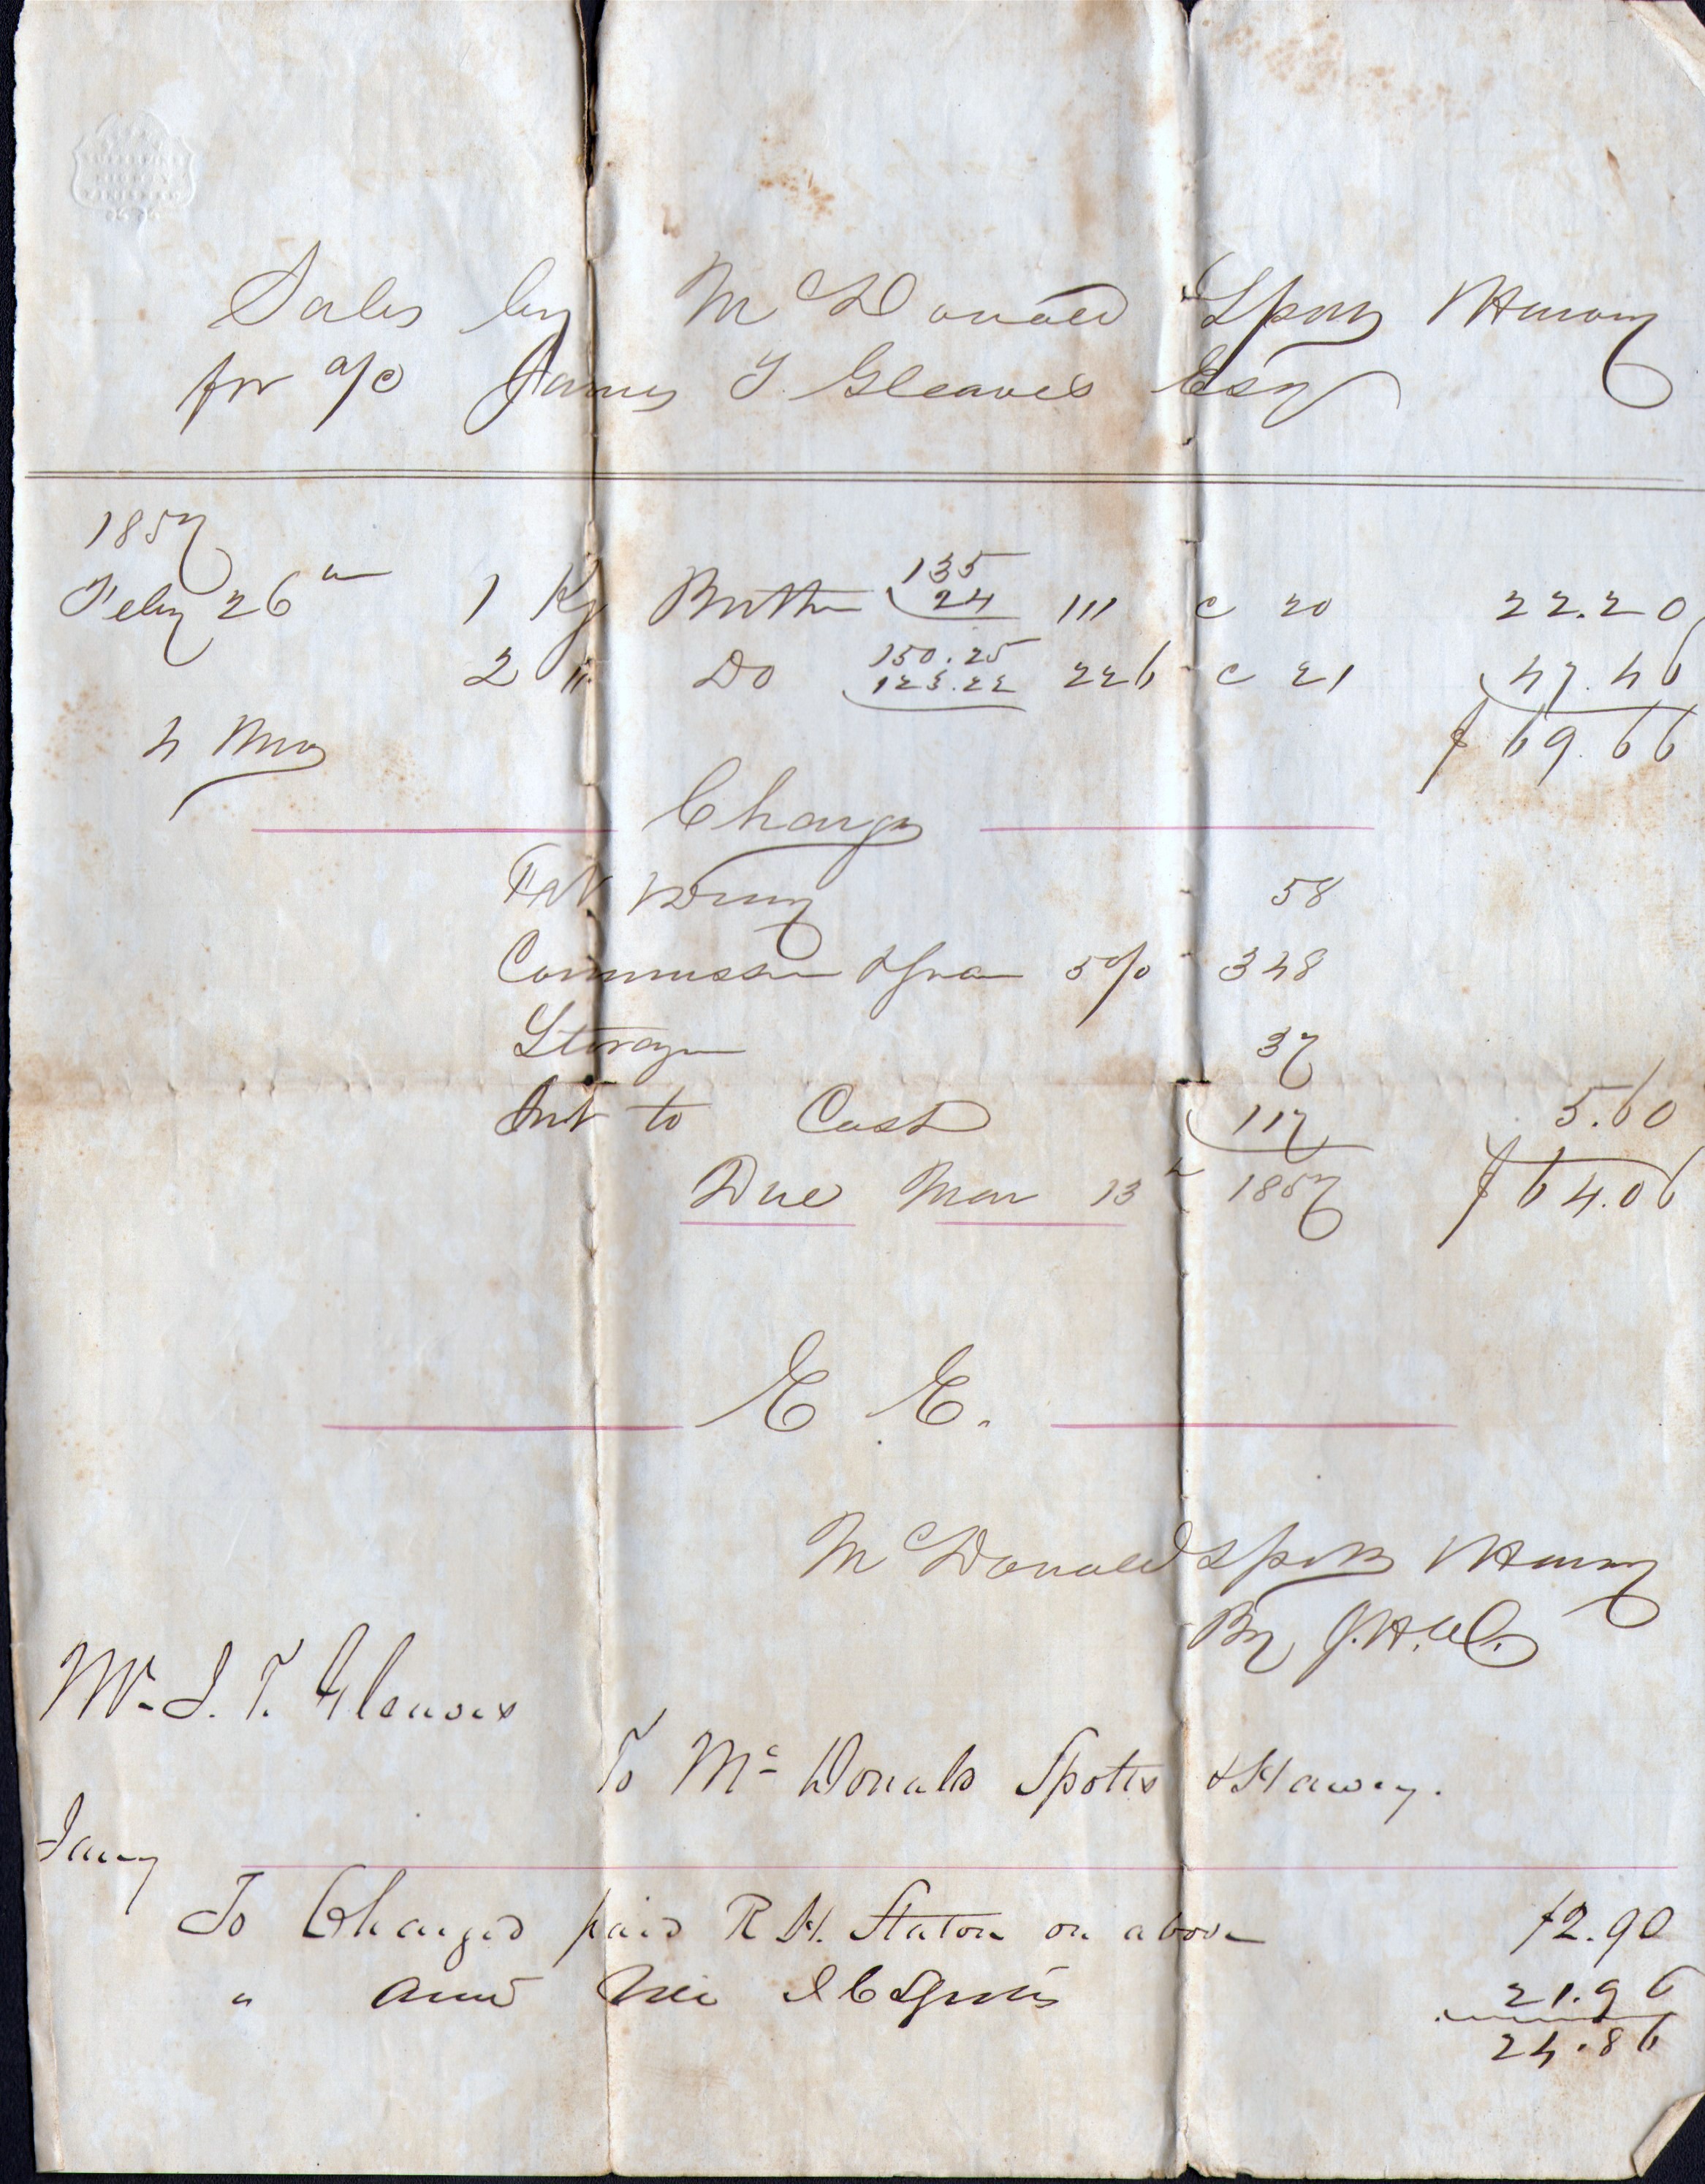 Sales by McDonald Spotts & Harvey
for a/c James T. Gleaves Esq
1857
Feby 26th 1 Kg Butter 135 24 111 c 20 22.20
2 " Do 150.25 123.22 226 c 21 47.46
4 Mos $69.66
Charges
Frt & Dray 58
Commission & Gua 5% 348
Storage 37
Int to Cash 117 5.60
Due Mar 13th 1857 $64.06
E E.
McDonald Spotts & Harvey
By J.H.
Mr. J. T. Gleaves
To Mc Donald Spotts & Harvey.
Jany
To Charges paid R H. Staton on above $2.90
" Amt J C Spotts 21.96
24.86